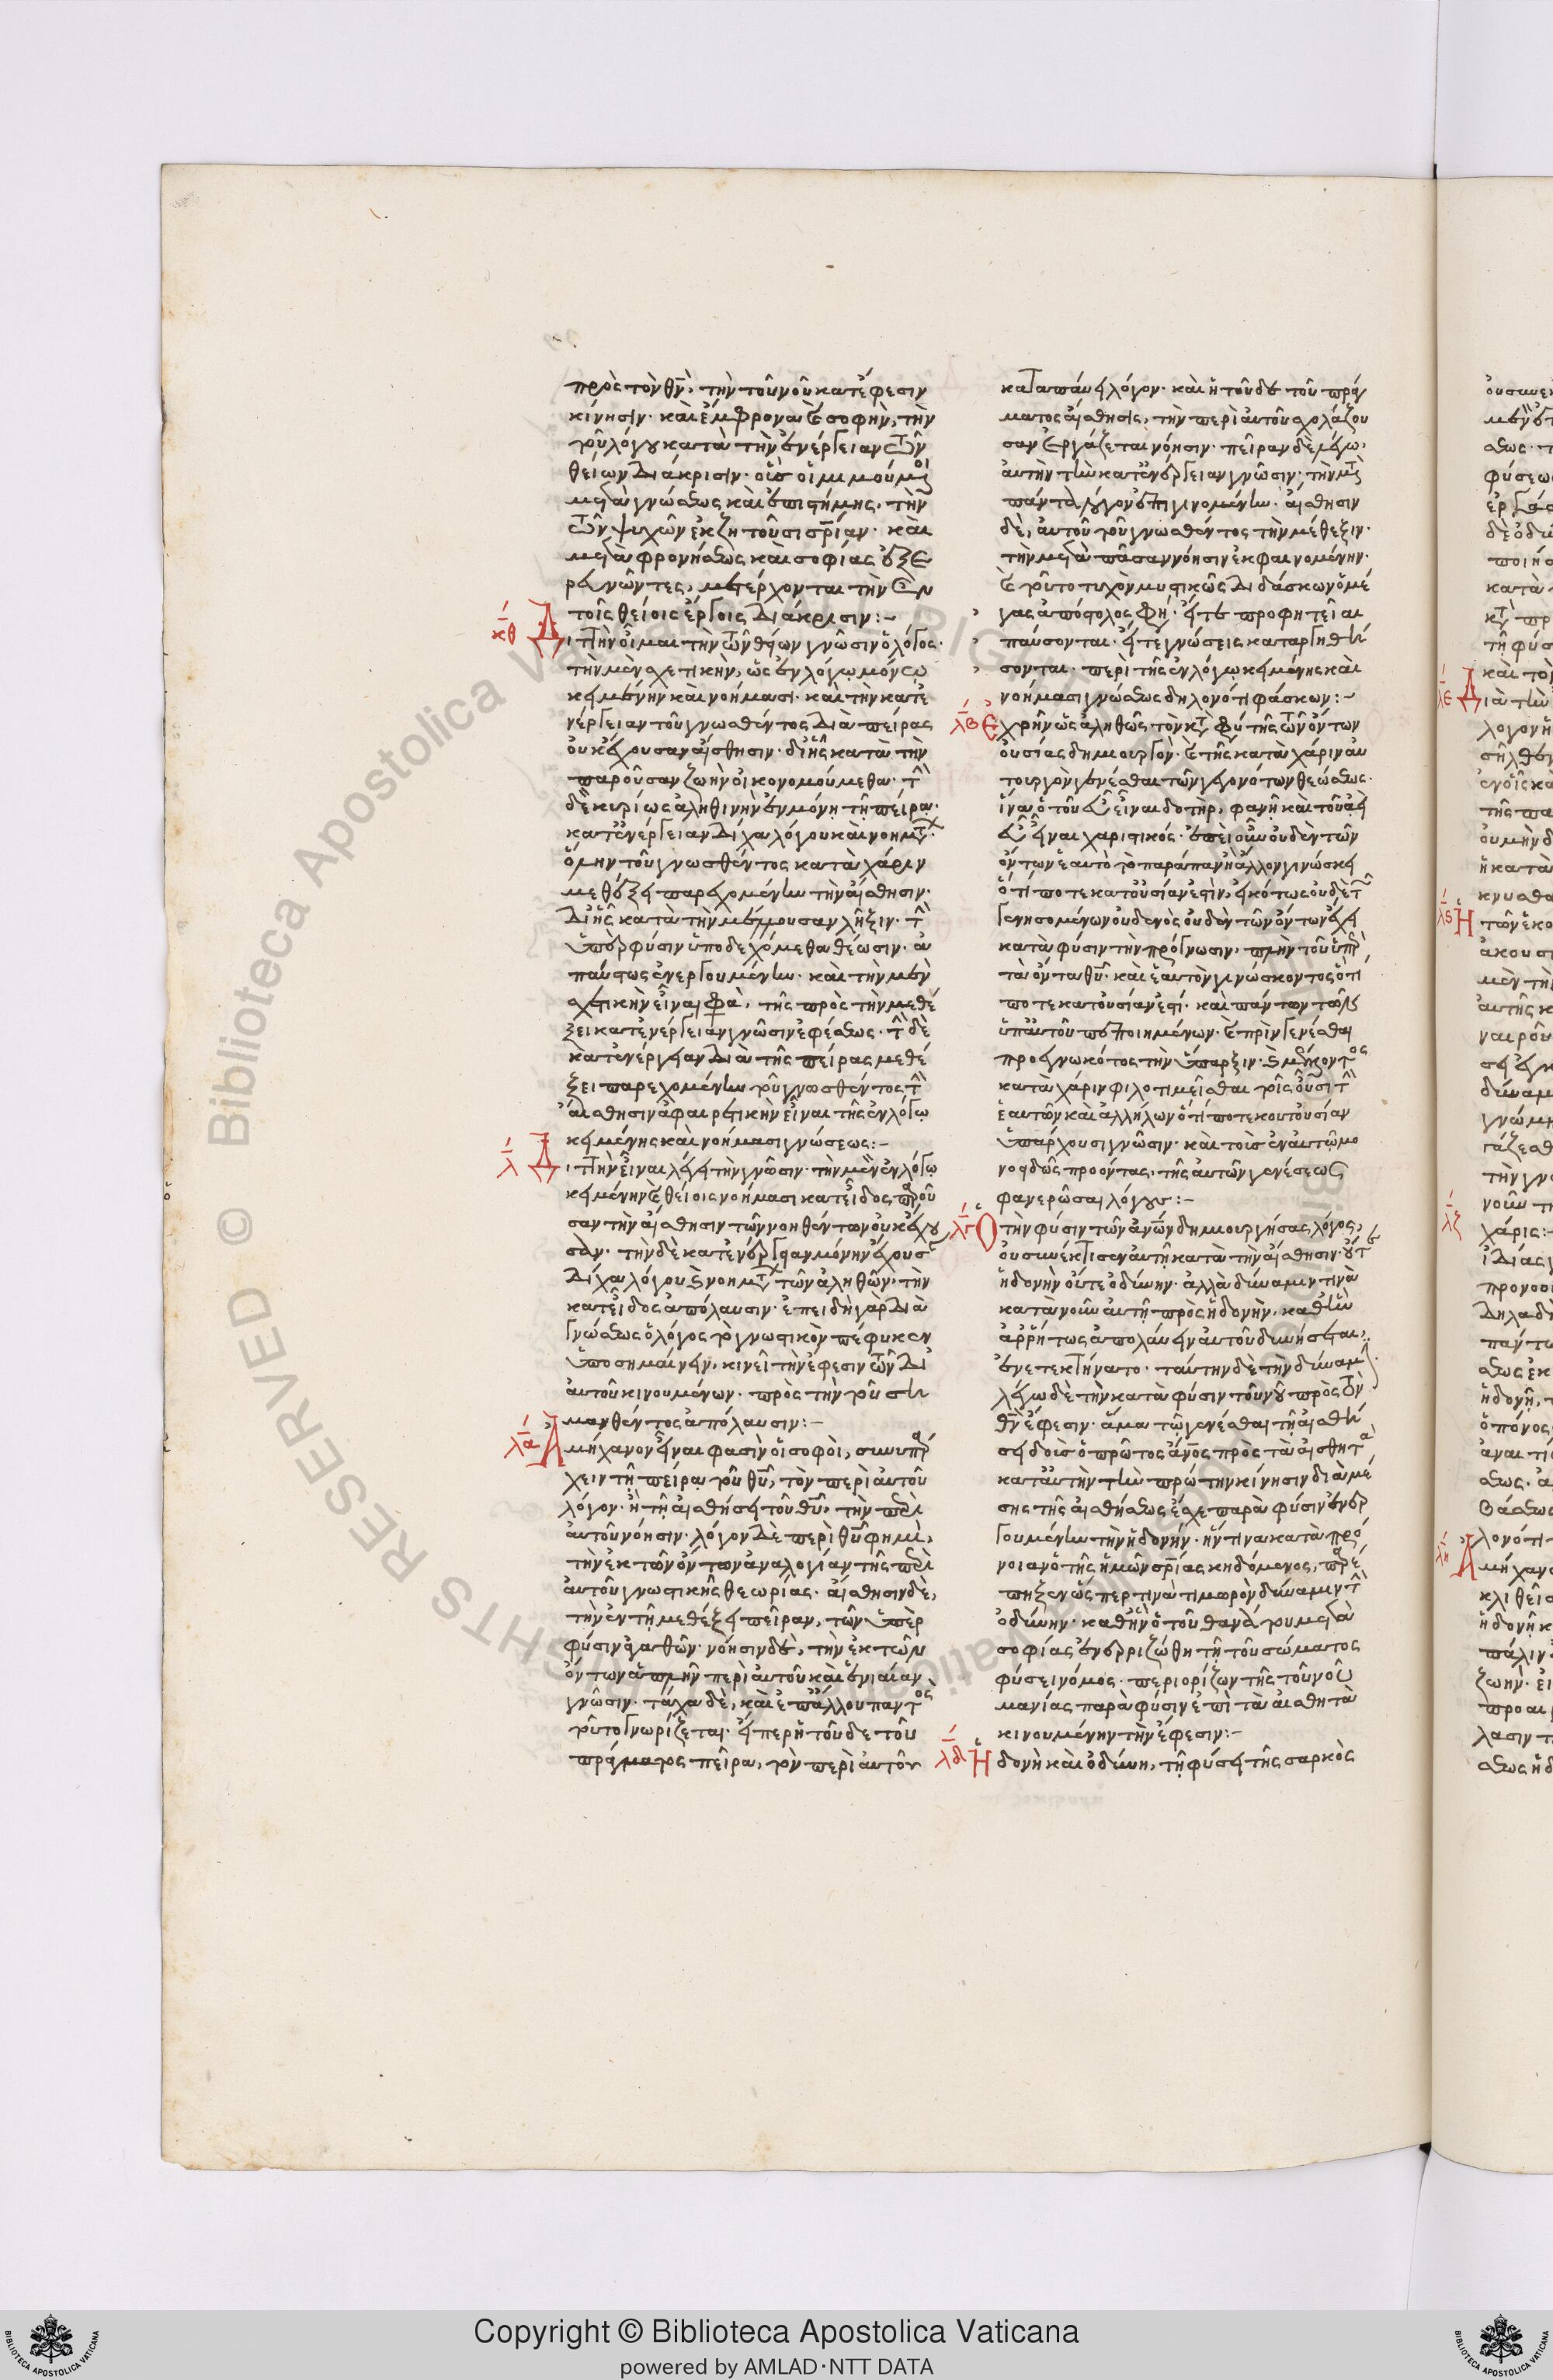 πρὸς τὸν θν̅, τὴν τοῦ νοῦ κατέφεσιν
κίνησιν· καὶ ἔμφρονα καὶ σοφὴν, τὴν
τοῦ λόγου κατὰ τὴν ἐνέργειαν τῶν
θείων διάκρισιν· οὓς οἱ μιμούμ
μετὰ γνώσεως καὶ ἐπιστήμης, τὴν
τῶν ψυχῶν ἐκζητοῦσι σρίαν· καὶ
μετὰ φρονήσεως καὶ σοφίας ἐξε
ρευνῶντες, μετέρχονται τὴν ἐν
τοῖς θείοις ἔργοις διάκρισιν:-
κθ Διττὴν οἶμαι τὴν τῶν θείων γνῶσιν ὁ λόγος·
τὴν μὲν σχετικὴν, ὡς ἐν λόγῳ μόνῳ
κειμένην καὶ νοήμασι· καὶ τὴν κατε
νέργειαν τοῦ γνωσθέντος διὰ πείρας
οὐκ ἔχουσαν αἴσθησιν· δι' ἧς κατὰ τὴν
παροῦσαν ζωὴν οἰκονομούμεθα· τὴν
δὲ κυρίως ἀληθινὴν ἐν μόνῃ τῇ πείρᾳ·
κατ' ἐνέργειαν δίχα λόγου καὶ νοημτ
ὅλην τοῦ γνωσθέντος κατὰ χάριν
μεθέξει παρεχομένην τὴν αἴσθησιν·
δι' ἧς κατὰ τὴν μέλλουσαν λῆξιν· τὴν
ὑπὲρ φύσιν ὑποδεχόμεθα θέωσιν· ἀ
παύστως ἐνεργουμένην· καὶ τὴν μὲν
σχετικὴν εἶναι φασὶ, τῆς πρὸς τὴν μεθέ
ξει κατ' ἐνέργειαν γνῶσιν ἐφέσεως· τὴν δὲ
κατ' ἐνέργειαν διὰ τῆς πείρας μεθέ
ξει παρεχομένην τοῦ γνωσθέντος τὴν
αἴσθησιν ἀφαιρετικὴν εἶναι τῆς ἐν λόγῳ
κειμένης καὶ νοήμασι γνώσεως:-
λ Διττὴν εἶναι λέγει τὴν γνῶσιν· τὴν μὲν ἐν λόγῳ
κειμένην καὶ θείοις νοήμασι κατ' εἶδος παροῦ
σαν τὴν αἴσθησιν τῶν νοηθέντων οὐκ ἔχου
σαν· τὴν δὲ κατ' ἐνέργειαν μόνην ἔχουσ
δίχα λόγου καὶ νοημτ τῶν ἀληθῶν· τὴν
κατ' εἶδος ἀπόλαυσιν· ἐπειδὴ γὰρ διὰ
γνώσεως ὁ λόγος τὸ γνωστικὸν πέφυκεν
ὑποσημαίνειν, κινεῖ τὴν ἔφεσιν τῶν δι'
αὐτοῦ κινουμένων· πρὸς τὴν τοῦ ση
μανθέντος ἀπόλαυσιν:-
λα Ἀμήχανον εἶναι φασὶν οἱ σοφοὶ, συνυπάρ
χειν τῇ πείρᾳ τοῦ θυ̅, τὸν περὶ αὐτοῦ
λόγον· ἢ τῇ αἰσθήσει τοῦ θυ̅, τὴν περὶ
αὐτοῦ νόησιν· λόγον δὲ περὶ θυ̅ φημὶ,
τὴν ἐκ τῶν ὄντων ἀναλογίαν τῆς περὶ
αὐτοῦ γνωστικῆς θεωρίας· αἴσθησιν δὲ,
τὴν ἐν τῇ μεθέξει πεῖραν, τῶν ὑπὲρ
φύσιν ἀγαθῶν· νόησιν δὲ, τὴν ἐκ τῶν
ὄντων ἁπλῆν περὶ αὐτοῦ καὶ ἑνιαίαν
γνῶσιν· τάχα δὲ, καὶ ἐπ' ἄλλου παντὸς
τοῦτο γνωρίζεται· εἴπερ ἡ τοῦδε τοῦ
πράγματος πεῖρα, τὸν περὶ αὐτοῦ
καταπαύει λόγον· καὶ ἡ τοῦδε τοῦ πράγ
ματος αἴσθησις, τὴν περὶ αὐτοῦ σχολάζου
σαν ἐργάζεται νόησιν· πεῖραν δὲ λέγω,
αὐτὴν τὴν κατ' ἐνέργειαν γνῶσιν, τὴν μετὰ
πάντα λόγον ἐπιγινομένην· αἴσθησιν
δὲ, αὐτοῦ τοῦ γνωσθέντος τὴν μέθεξιν·
τὴν μετὰ πᾶσαν νόησιν ἐκφαινομένην·
καὶ τοῦτο τυχὸν μυστικῶς διδάσκων ὁ μέ
γας ἀπόστολος φη· εἴτε προφητεῖαι
παύσονται· εἴτε γνώσεις καταργηθή
σονται· περὶ τῆς ἐν λόγῳ κειμένης καὶ
νοήμασι γνώσεως δηλονότι φάσκων:-
λβ Ἐχρῆν ὡς ἀληθῶς τὸν κατὰ φύσιν τῆς τῶν ὄντων
οὐσίας δημιουργὸν· καὶ τῆς κατὰ χάριν αὐ
τουργὸν γενέσθαι τῶν γεγονότων θεώσεως·
ἵνα ὁ τοῦ εὖ εἶναι δοτὴρ, φανῇ καὶ τοῦ ἀεὶ
εὖ εἶναι χαριστικός· ἐπεὶ οὖν οὐδὲν τῶν
ὄντων ἑαυτὸ τὸ παράπαν ἢ ἄλλον γινώσκει
ὅ τί ποτε κατ' οὐσίαν ἐστὶν, εἰκότως οὐδὲ τῶν
γενησομένων οὐδενὸς οὐδὲν τῶν ὄντων ἔχει
κατὰ φύσιν τὴν πρόγνωσιν, πλὴν τοῦ ὑπὲρ
τὰ ὄντα θυ̅· καὶ ἑαυτὸν γινώσκοντος ὅ τί
ποτε κατ' οὐσίαν ἐστί· καὶ πάντων τῶν
ὑπ' αὐτοῦ πεποιημένων· καὶ πρὶν γενέσθαι
προεγνωκότος τὴν ὕπαρξιν· καὶ μέλλοντος
κατὰ χάριν φιλοτιμεῖσθαι τοῖς οὖσι τὴν
ἑαυτῶν καὶ ἀλλήλων ὅ τί ποτε κατ' οὐσίαν
ὑπάρχουσι γνῶσιν· καὶ τοὺς ἐν αὐτῷ μο
νοειδῶς προόντας, τῆς αὐτῶν γενέσεως
φανερῶσαι λόγους:-
λγ Ὁ τὴν φύσιν τῶν ἀνων δημιουργήσας λόγος,
οὐ συνέκτισεν αὐτῇ κατὰ τὴν αἴσθησιν οὔτε
ἡδονὴν οὔτε ὀδύνην· ἀλλὰ δύναμιν τινὰ
κατὰ νοῦν αὐτῇ πρὸς ἡδονὴν, καθ' ἣν
ἀρρήτως ἀπολαύειν αὐτοῦ δυνήσεται,
ἐνετεκτήνατο· ταύτην δὲ τὴν δύναμ
λέγω δὲ τὴν κατὰ φύσιν τοῦ νοῦ πρὸς τὸν
θν̅ ἔφεσιν· ἅμα τῷ γενέσθαι τῇ αἰσθή
σει δοὺς ὁ πρῶτος ἄνος πρὸς τὰ αἰσθητὰ
κατ' αὐτὴν τὴν πρώτην κίνησιν διὰ μέ
σης τῆς αἰσθήσεως ἔσχε παρὰ φύσιν ἐνερ
γουμένην τὴν ἡδονήν· ἥντινα κατὰ πρό
νοιαν ὁ τῆς ἡμῶν σρίας κηδόμενος, παρέ
πηξεν ὥσπερ τινὰ τιμωρὸν δύναμιν τὴν
ὀδύνην· καθ' ἣν ὁ τοῦ θανάτου μετὰ
σοφίας ἐνερριζώθη τῇ τοῦ σώματος
φύσει νόμος· περιορίζων τῆς τοῦ νοῦ
μανίας παρὰ φύσιν ἐπὶ τὰ αἰσθητὰ
κινουμένην τὴν ἔφεσιν:-
λδ Ἡδονὴ καὶ ὀδύνη, τῇ φύσει τῆς σαρκὸς
Copyright © Biblioteca Apostolica Vaticana
powered by AMLAD·NTT DATA